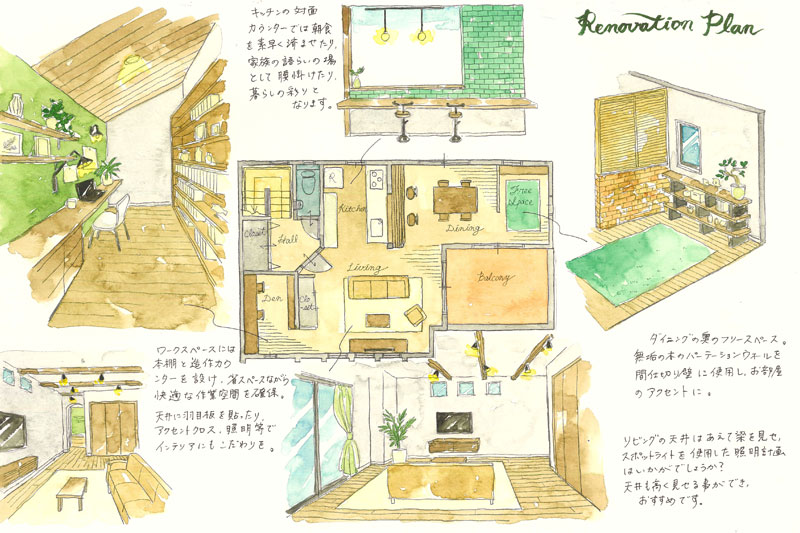 Renovation Plan
キッチンの対面
カウンターでは朝食
を素早く済ませたり、
家族の語らいの場
として腰掛けたり、
暮らしの彩りと
なります。
R
Kitchen
Free
space
Dining
Closet
Hall
Living
Balcony
Den
Clo
set
ワークスペースには
本棚と造作カウ
ンターを設け、省スペースながら
快適な作業空間を確保。
天井に羽目板を貼ったり、
アクセントクロス、照明等で
インテリアにもこだわりを。
ダイニングの奥のフリースペース。
無垢の木のパーテーションウォールを
間仕切り壁に使用し、お部屋
のアクセントに。
リビングの天井はあえて梁を見せ、
スポットライトを使用した照明計画
はいかがでしょうか？
天井も高く見せる事ができ、
おすすめです。